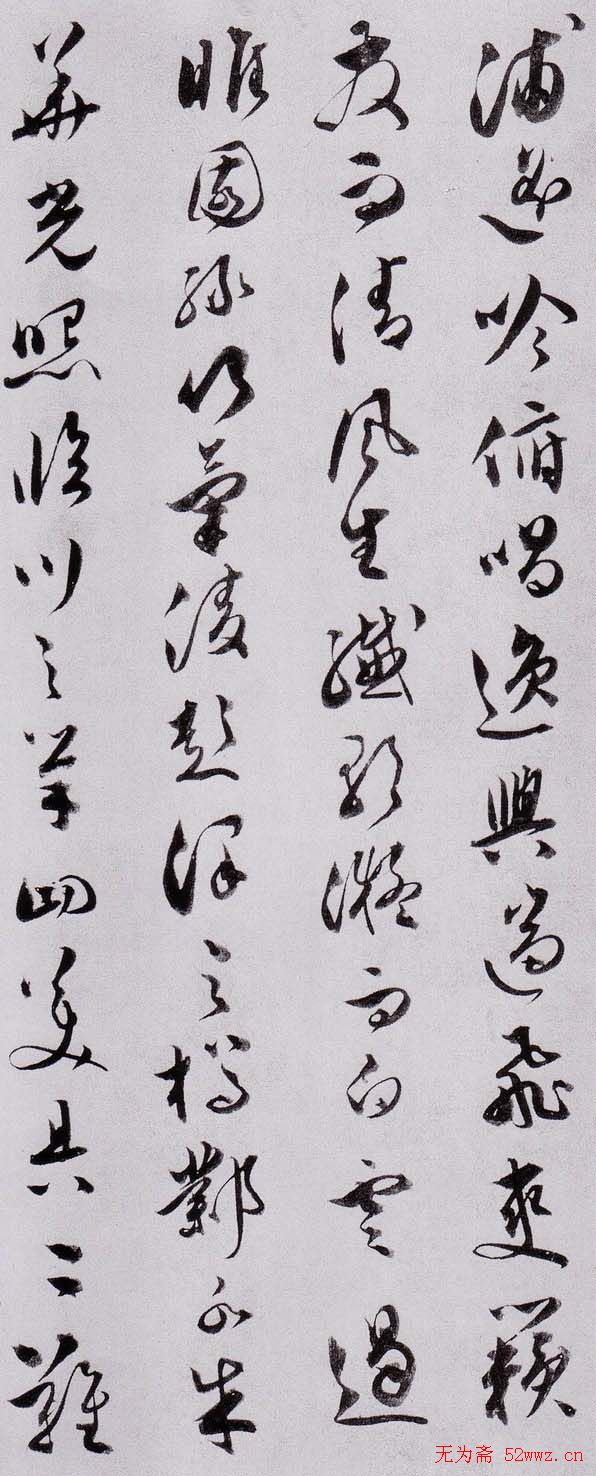 浦遥吟俯唱逸興遄飛爽籟
發而清風生纖歌凝而白雲遏
睢園綠竹氣淩彭澤之樽鄴水朱
華光照臨川之筆四美具二難
无为斋 52wwz.cn